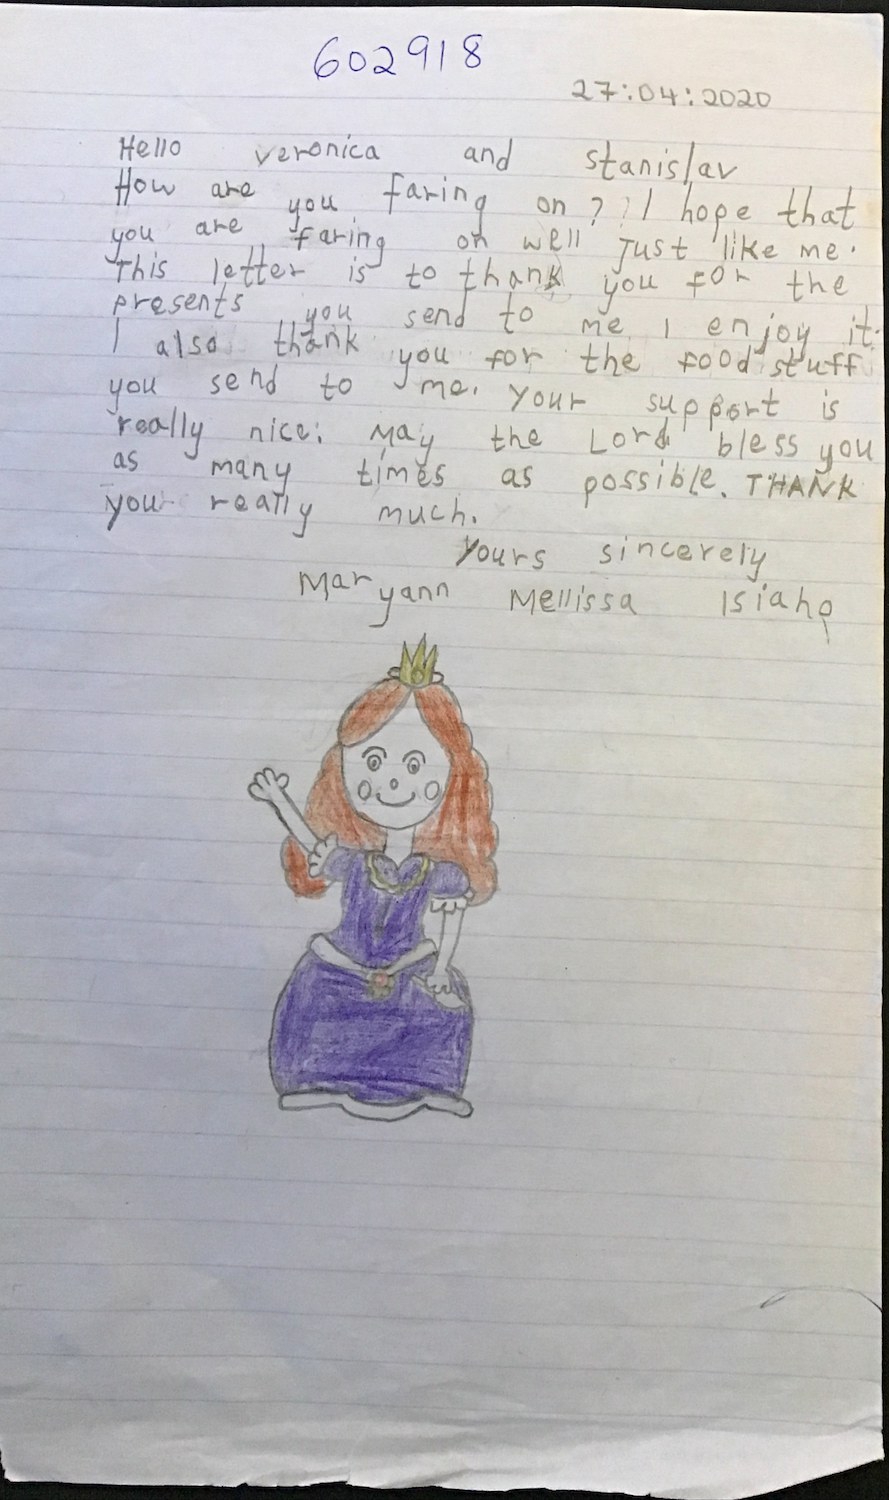 602918
27:04:2020
Hello veronica and stanislav
How are you faring on? I hope that
you are faring on well just like me.
This letter is to thank you for the
presents you send to me I enjoy it.
I also thank you for the food stuff
you send to me. Your support is
really nice. May the Lord bless you
as many times as possible. THANK
you really much.
Yours sincerely
Maryann Mellissa Isiaho